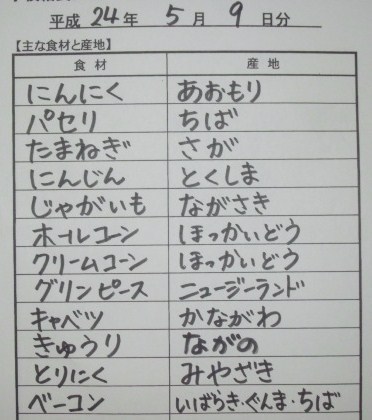 平成 24 年 5 月 9 日分
【主な食材と産地】
食材 産地
にんにく あおもり
パセリ ちば
たまねぎ さが
にんじん とくしま
じゃがいも ながさき
ホールコーン ほっかいどう
クリームコーン ほっかいどう
グリンピース ニュージーランド
キャベツ かながわ
きゅうり ながの
とりにく みやざき
ベーコン いばらき・ぐんま・ちば